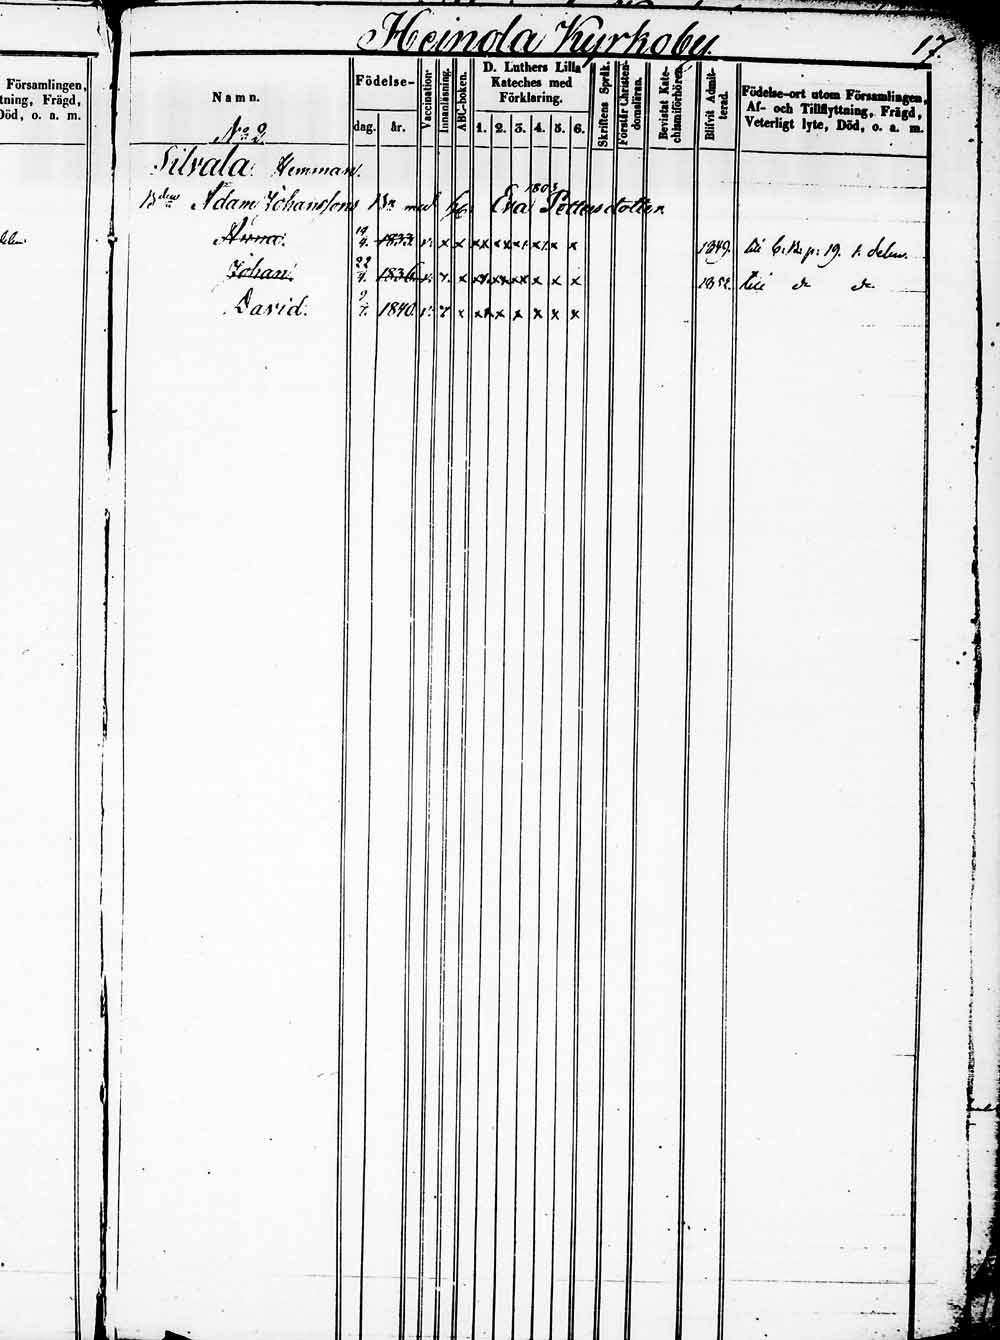 Heinola Kyrkoby. 17.
Församlingen,
tning, Frägd,
Död, o. a. m.
Namn.
Födelse-
dag. år.
Vaccination.
Innanläsning.
ABC-boken.
D. Luthers Lilla
Kateches med
Förklaring.
1. 2. 3. 4. 5. 6.
Skriftens Språk.
Förstår Christen-
domsläran.
Bevistat Kate-
chismiförhören.
Blifvit Admit-
terad.
Födelse-ort utom Församlingen,
Af- och Tillflyttning, Frägd,
Veterligt lyte, Död, o. a. m.
No 2
Silvala Hemman.
1803
Adam Johanssons Bn med Eva Pettersdotter
Anna. 19/4. 1833 v. x x xx x x x x x 1849. till C. B. p. 19. 1. delen.
Johan. 22/4. 1836 v. x x x x x x x 1852. till do do
David. 9/7. 1840. v. x x x x x x x